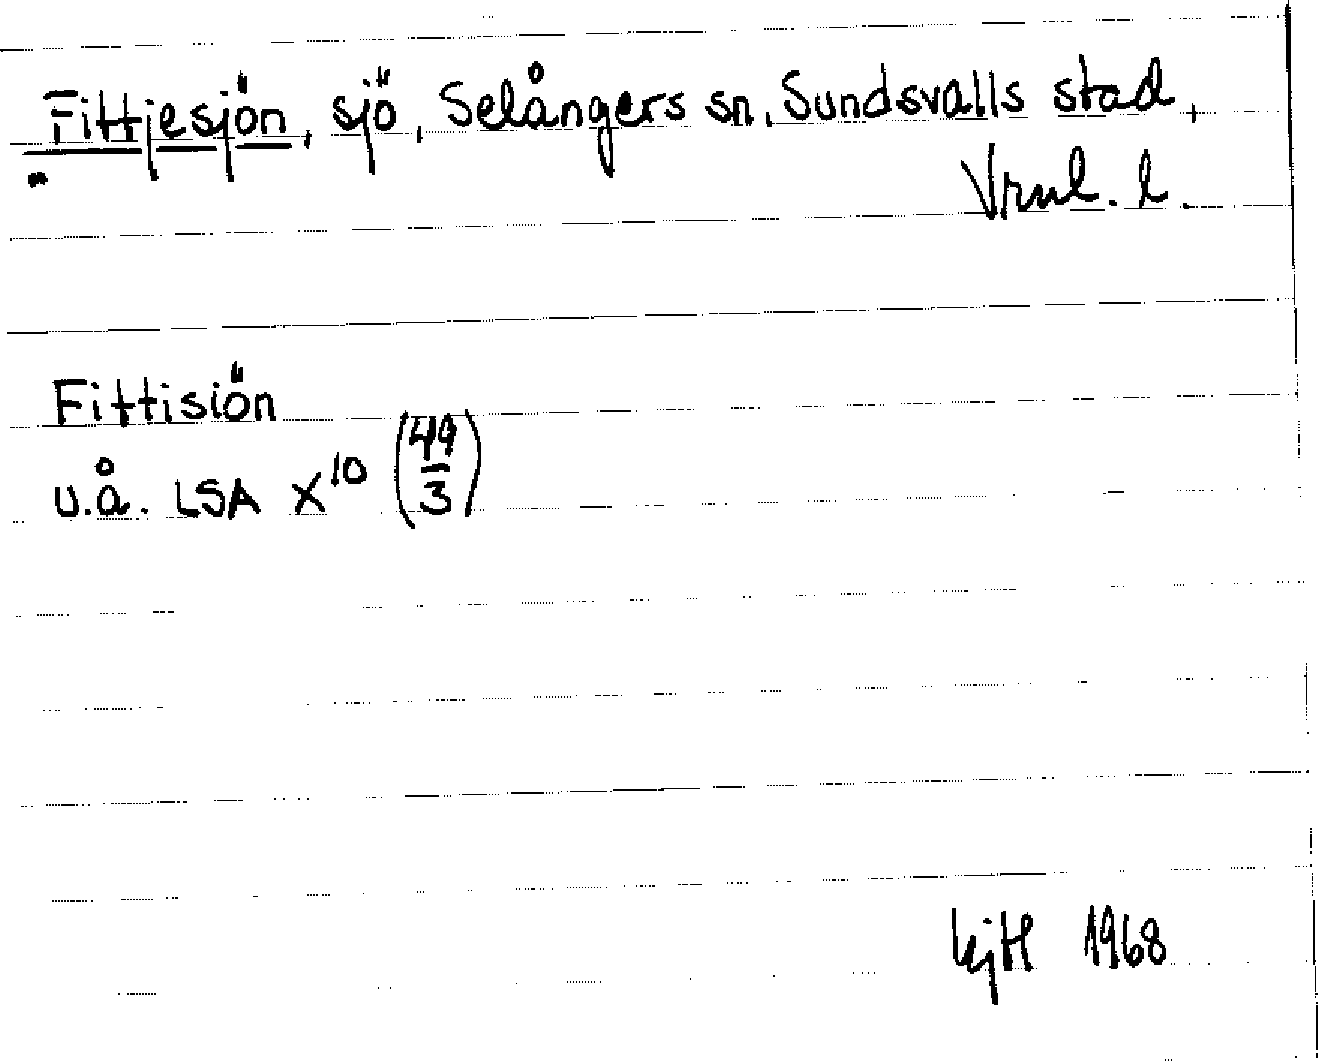 Fittjesjön, sjö, Selångers sn, Sundsvalls stad,
Vrnl. l.
Fittisiön
u.å. LSA X¹⁰ (49/3)
1968